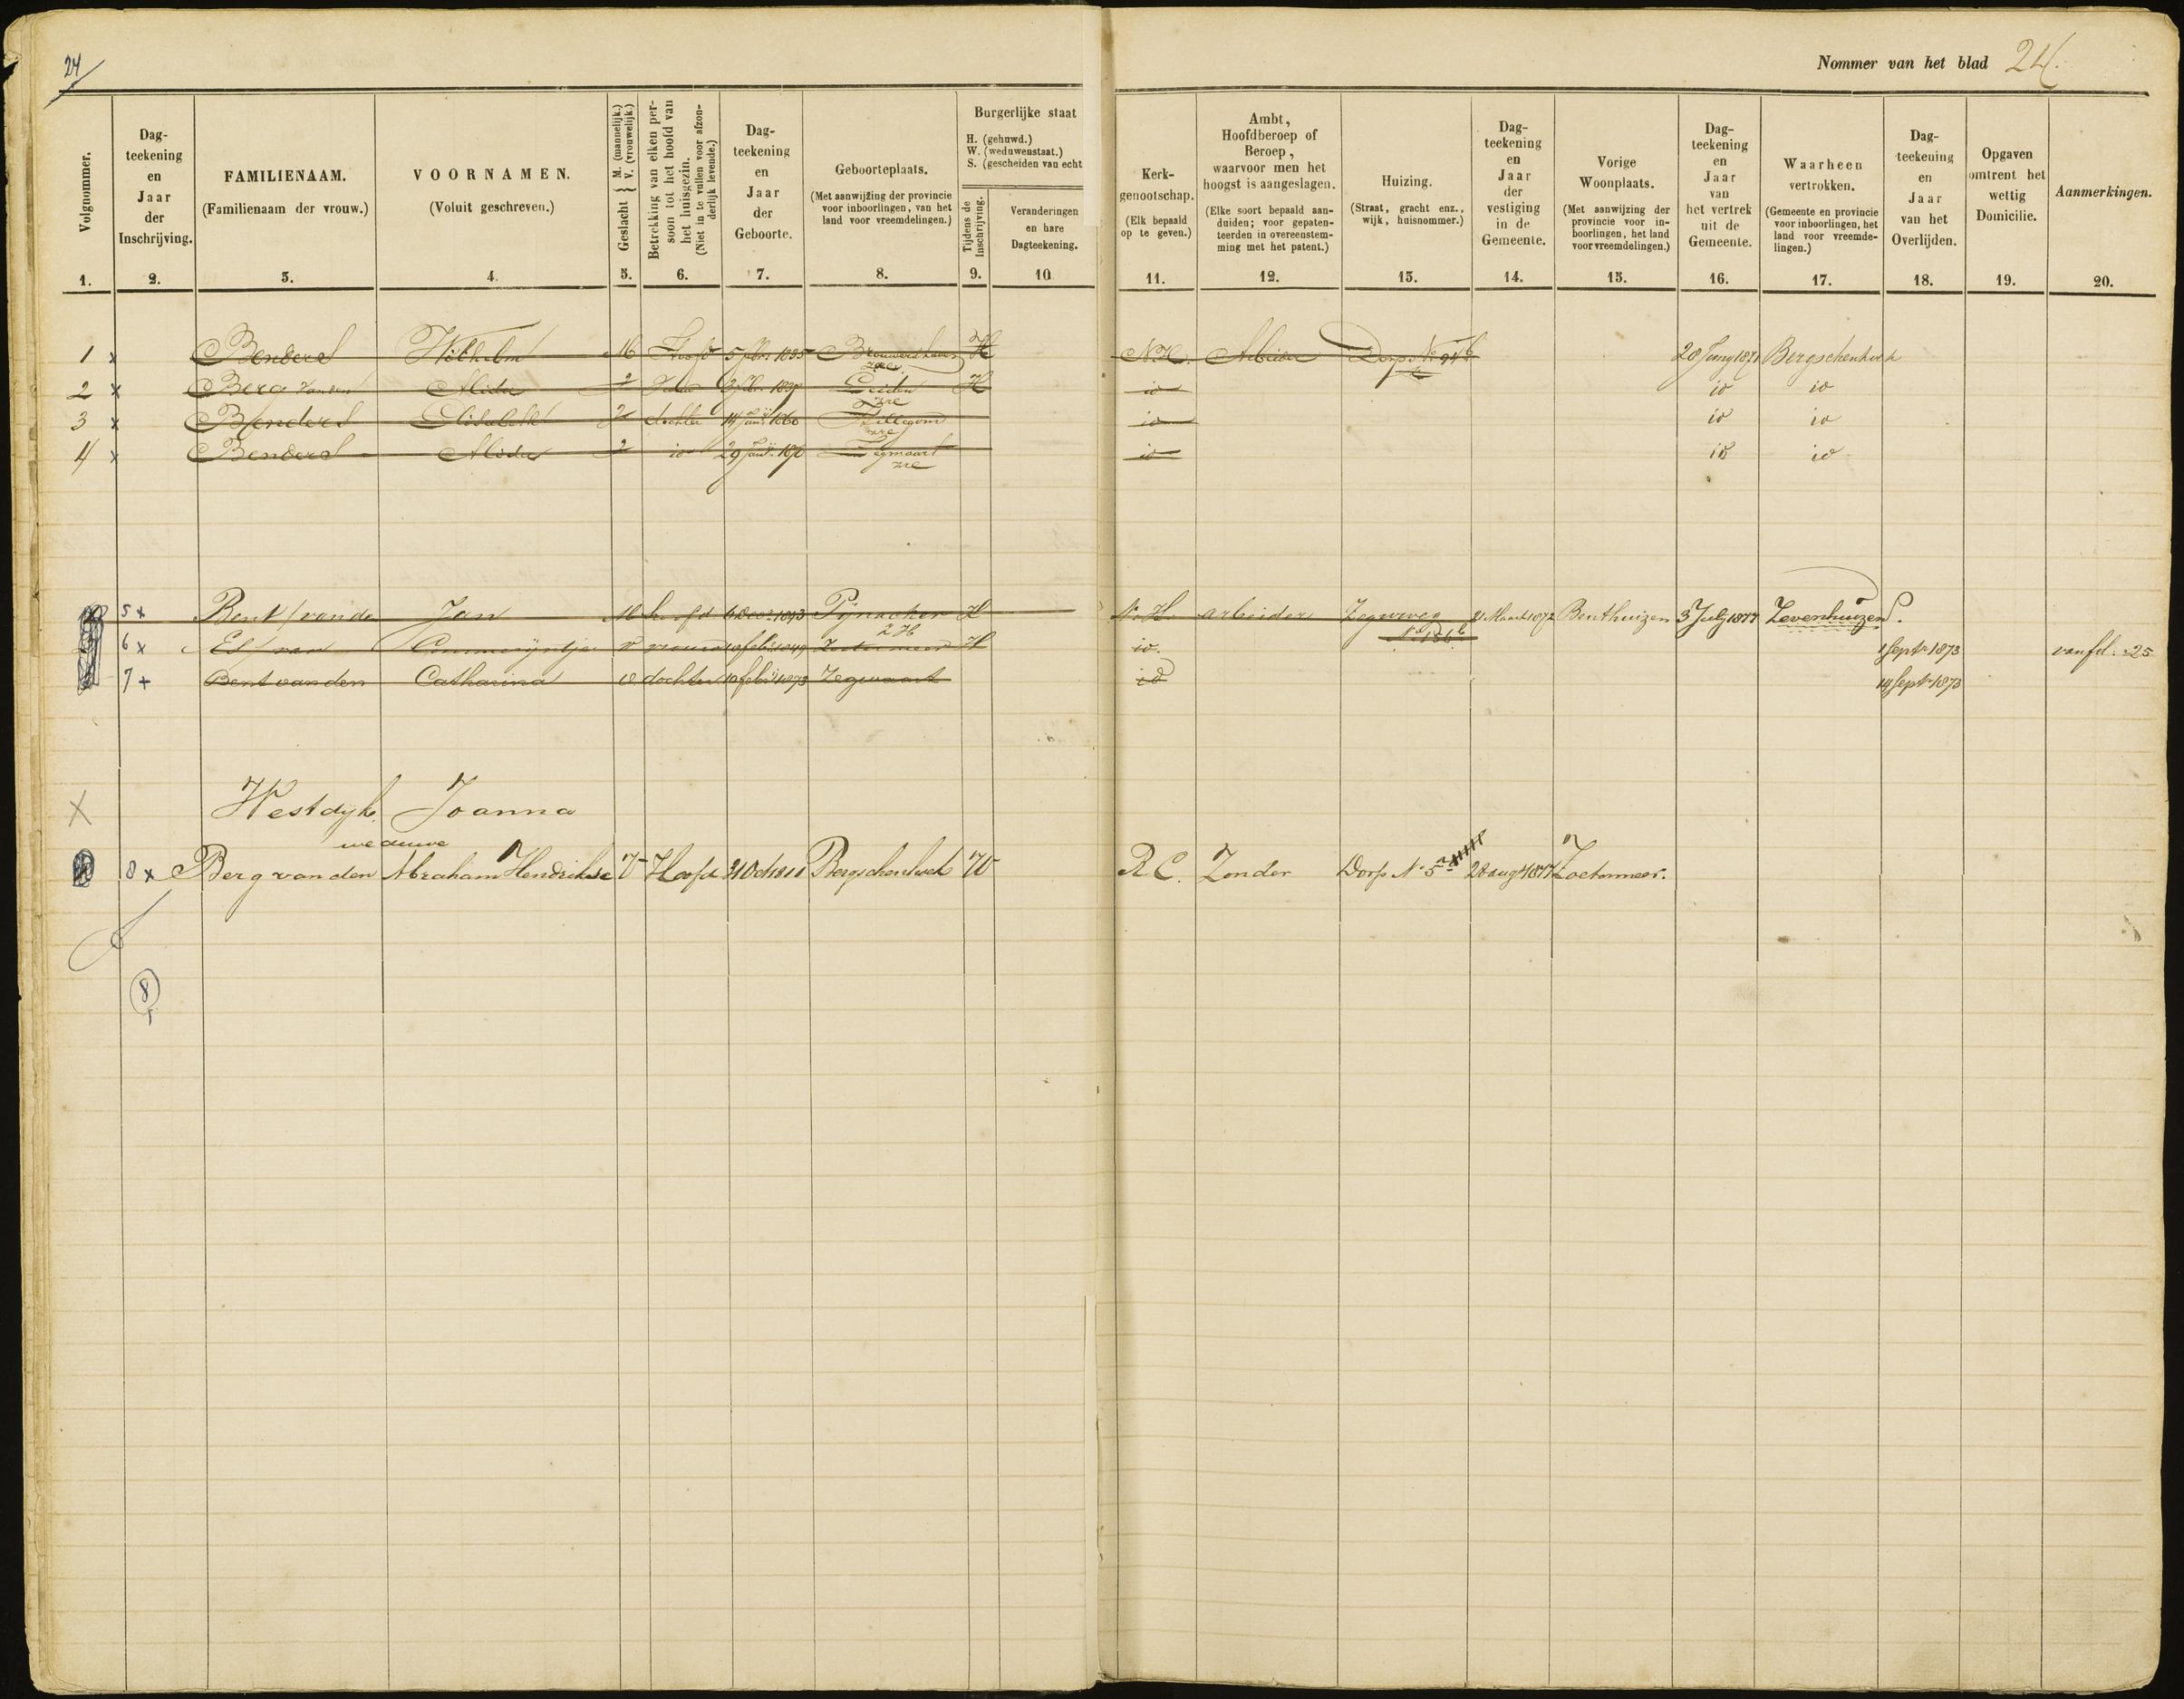 24
Nommer van het blad 24.
Volgnommer.
1.
Dag-
teekening
en
Jaar
der
Inschrijving.
2.
FAMILIENAAM.
(Familienaam der vrouw.)
3.
VOORNAMEN.
(Voluit geschreven.)
4.
Geslacht { M. (mannelijk.) V. (vrouwelijk.)
5.
Betrekking van elken per-
soon tot het hoofd van
het huisgezin.
(Niet in te vullen voor afzon-
derlijk levende.)
6.
Dag-
teekening
en
Jaar
der
Geboorte.
7.
Geboorteplaats.
(Met aanwijzing der provincie
voor inboorlingen, van het
land voor vreemdelingen.)
8.
Burgerlijke staat
H. (gehuwd.)
W. (weduwenstaat.)
S. (gescheiden van echt
Tijdens de
Inschrijving.
9.
Veranderingen
en hare
Dagteekening.
10
Kerk-
genootschap.
(Elk bepaald
op te geven.)
11.
Ambt,
Hoofdberoep of
Beroep,
waarvoor men het
hoogst is aangeslagen.
(Elke soort bepaald aan-
duiden; voor gepaten-
teerden in overeenstem-
ming met het patent.)
12.
Huizing.
(Straat, gracht enz.,
wijk, huisnommer.)
13.
Dag-
teekening
en
Jaar
der
vestiging
in de
Gemeente.
14.
Vorige
Woonplaats.
(Met aanwijzing der
provincie voor in-
boorlingen, het land
voor vreemdelingen.)
15.
Dag-
teekening
en
Jaar
van
het vertrek
uit de
Gemeente.
16.
Waarheen
vertrokken.
(Gemeente en provincie
voor inboorlingen, het
land voor vreemde-
lingen.)
17.
Dag-
teekening
en
Jaar
van het
Overlijden.
18.
Opgaven
omtrent het
wettig
Domicilie.
19.
Aanmerkingen.
20.
1 x Benders Wilhelm M Hoofd Brouwershaven H N.H. Arbeider Dorp No 94 b 1871 Bergschenhoek
2 x Berg van den Alida Leiden H io io io
zre
3 x Benders Elisabeth dochter 1860 Hillegom io io io
zre
4 x Benders Alida io 29 Jan Zegwaart io io io
zre
5 x Bent / van de Jan M hoofd 6 Decr 1843 Pijnacker H N.H. arbeider Zegwweg 21 Maart 1872 Benthuizen 3 July 1877 Zevenhuizen
Z H
6 x El / van Commerijntje V vrouw 10 febr 1849 Zoetermeer H io. 1 Sept 1873 van fol. 25
7 + Bent van den Catharina V dochter 10 febr 1873 Zegwaart id 14 Sept 1873
x Westdijk Joanna
weduwe
8 x Berg van den Abraham Hendrikse V Hoofd 31 Oct 1811 Bergschenhoek W R C. Zonder Dorp No 5 28 aug 1877 Zoetermeer.
8